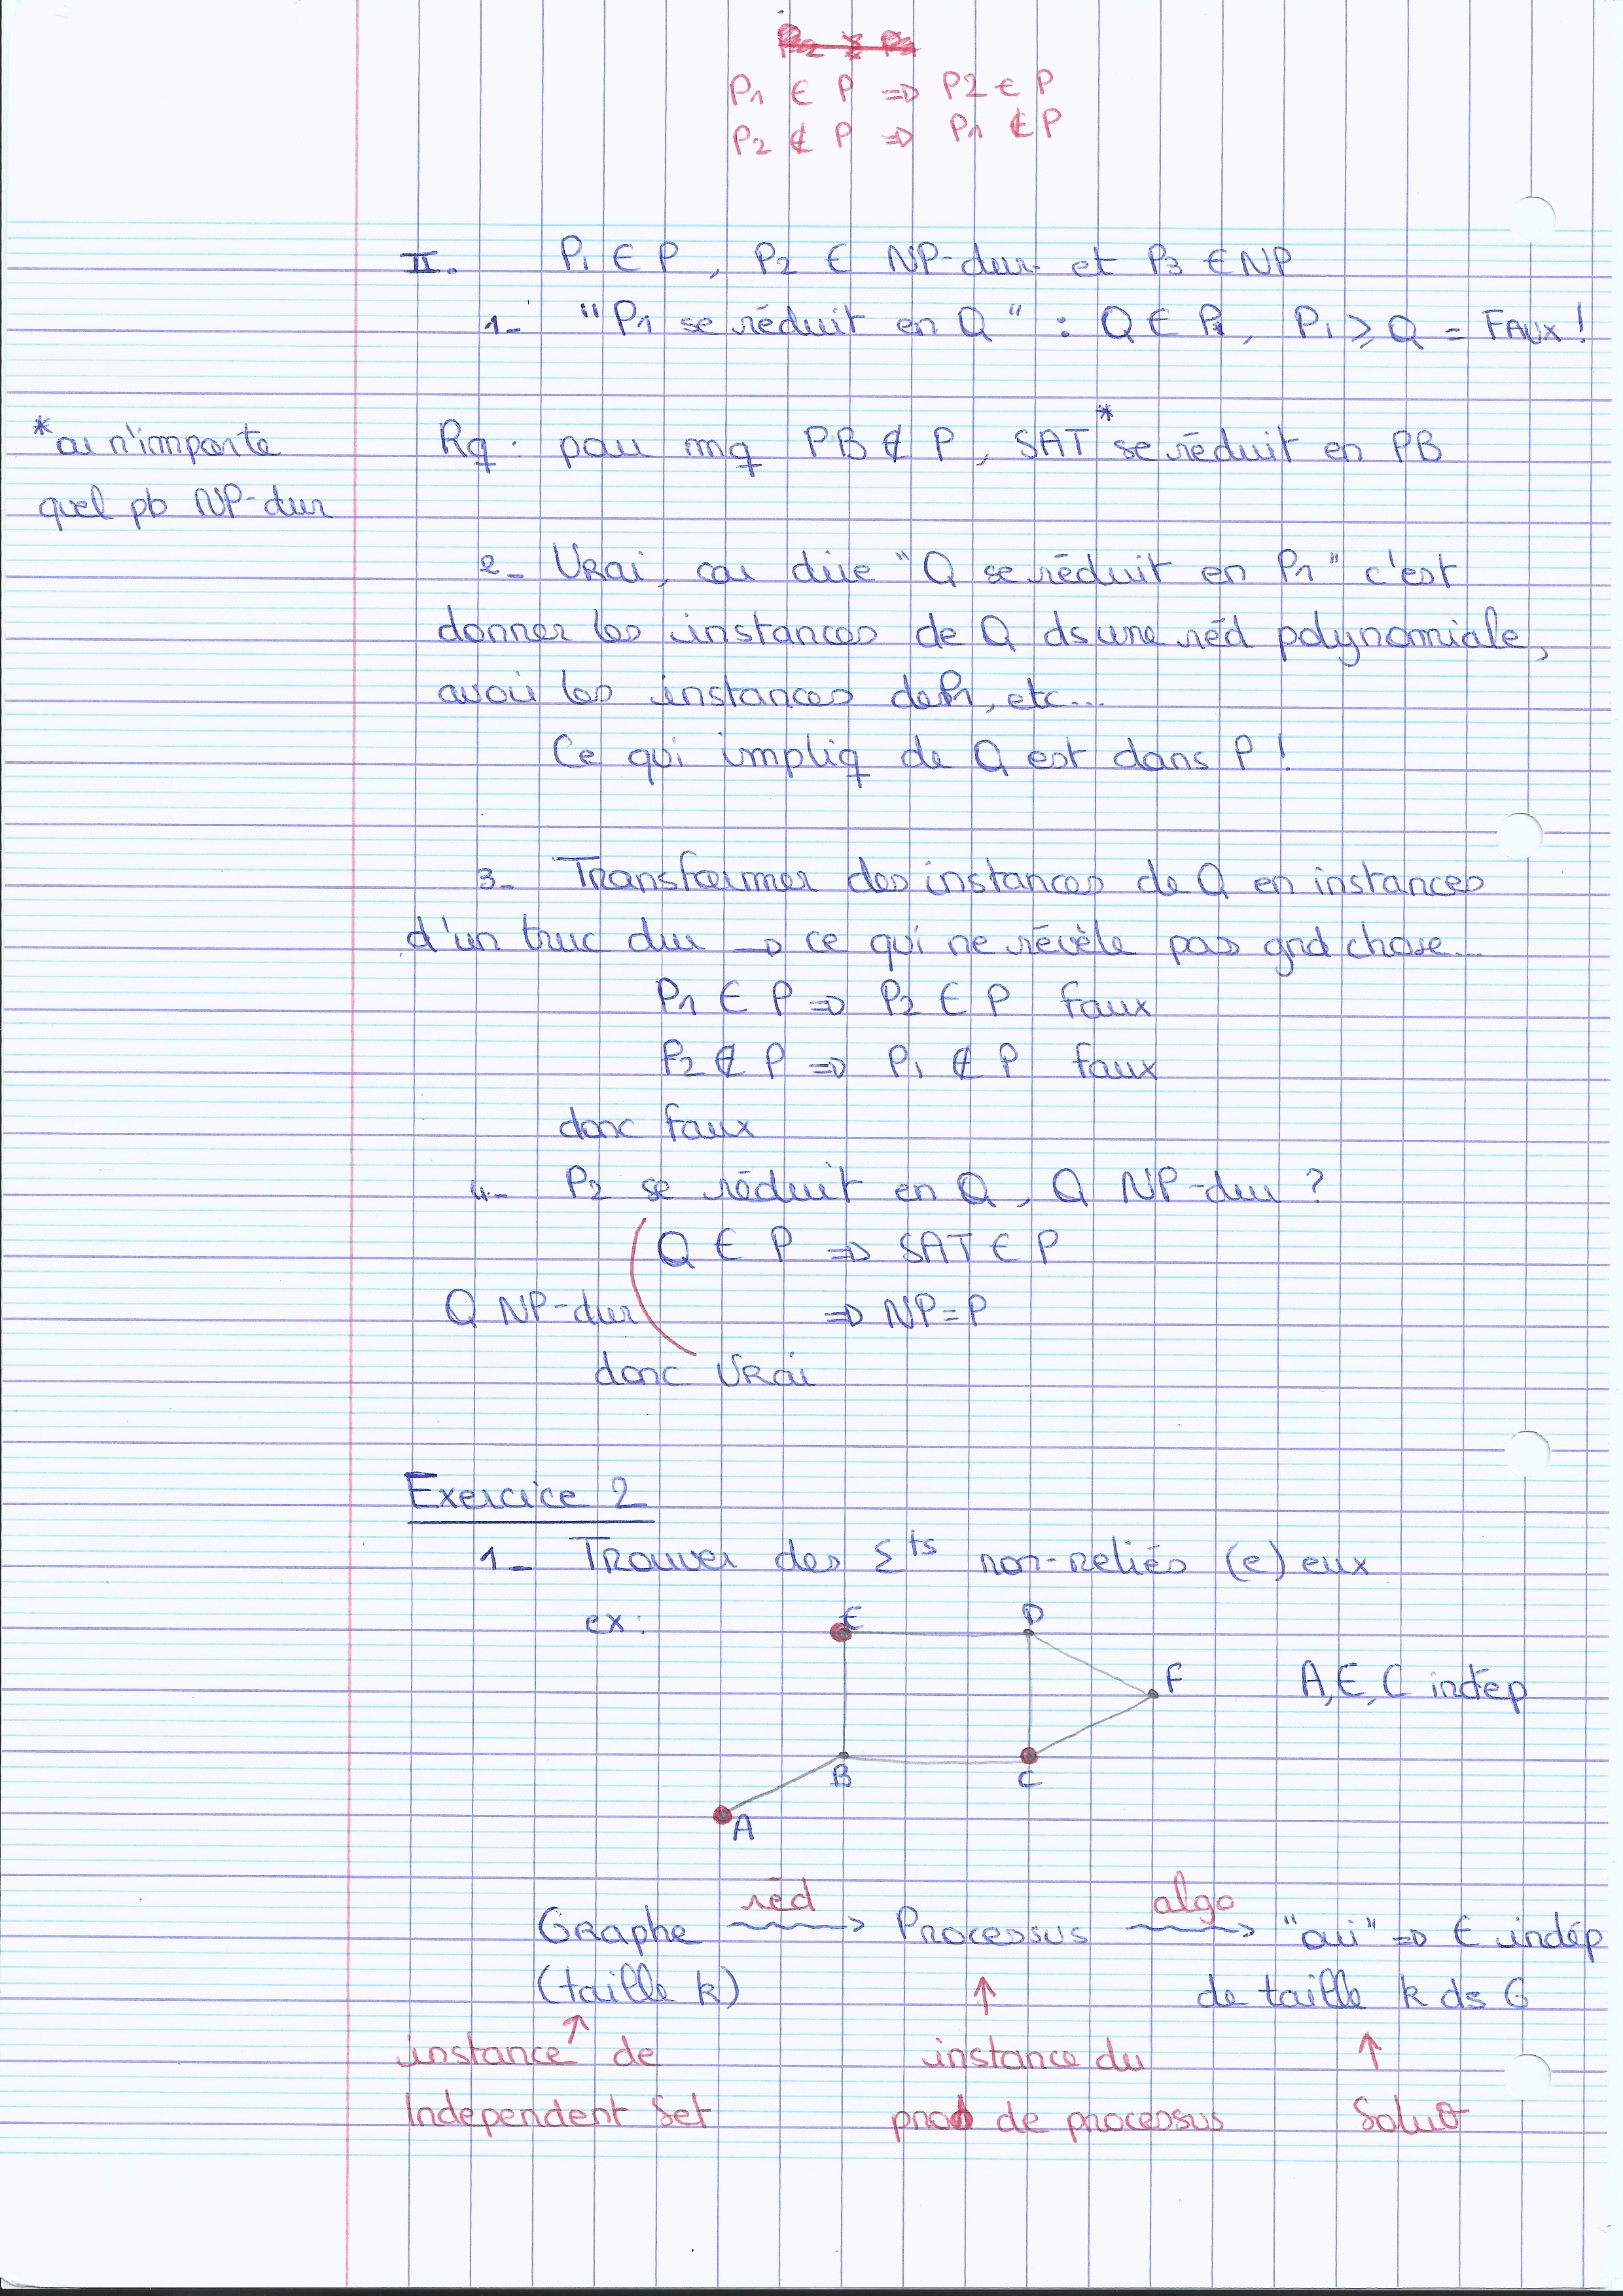 P1 ∈ P ⇒ P2 ∈ P
P2 ∉ P ⇒ P1 ∉ P
II. P1 ∈ P, P2 ∈ NP-dur et P3 ∈ NP
1- "P1 se réduit en Q" : Q ∈ P, P1 ≥ Q = FAUX !
*ou n'importe
quel pb NP-dur
Rq : pour mq PB ∉ P, SAT* se réduit en PB
2- Vrai, car dire "Q se réduit en P1" c'est
donner les instances de Q ds une réd polynomiale,
avoir les instances de P1, etc...
Ce qui impliq de Q est dans P !
3- Transformer des instances de Q en instances
d'un truc dur → ce qui ne révèle pas grd chose...
P1 ∈ P ⇒ P2 ∈ P faux
P2 ∉ P ⇒ P1 ∉ P faux
donc faux
4- P2 se réduit en Q, Q NP-dur ?
Q ∈ P ⇒ SAT ∈ P
Q NP-dur ⇒ NP = P
donc Vrai
Exercice 2
1- Trouver des Σts non-reliés (e) eux
ex :
E D
F
A, E, C indep
B C
A
Graphe réd Processus algo "oui" ⇒ E indép
(taille k) ↑ de taille k ds G
instance de instance du ↑
Independent Set prob de processus Soluθ